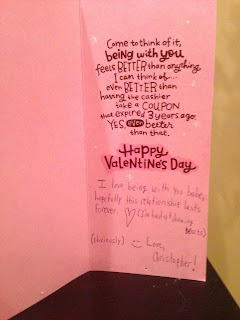 Come to think of it,
being with you
feels BETTER than anything
I can think of...
even BETTER than
having the cashier
take a COUPON
that expired 3 years ago.
YES, even better
than that.
Happy
Valentine's Day
I love being with you babe,
hopefully this relationship lasts
forever. (I'm bad at drawing
hearts)
(obviously) Love,
Christopher!